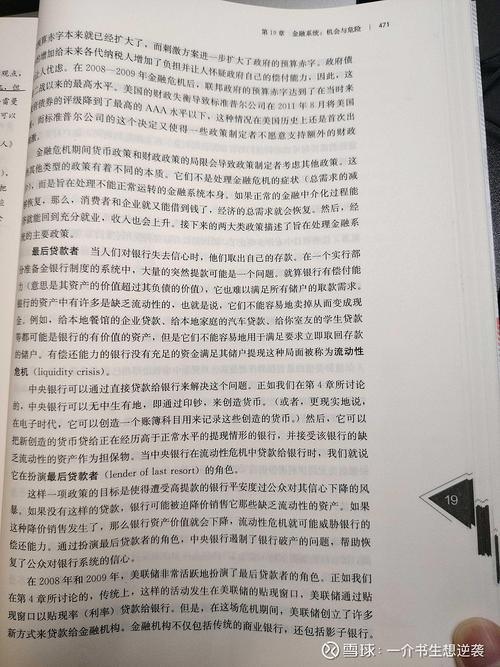 第 19 章 金融系统:机会与危险 471
预算赤字本来就已经扩大了,而刺激方案进一步扩大了政府的预算赤字。政府债
增加给未来各代纳税人增加了负担并让人怀疑政府自己的偿付能力,因此,这
让人忧虑。在 2008—2009 年金融危机后,联邦政府的预算赤字达到了在当时来
战以来的最高水平。美国的财政失衡导致标准普尔公司在 2011 年 8 月将美国
政府债券的评级降到了最高的 AAA 水平以下,这种情况在美国历史上还是首次出
而标准普尔公司的这个决定又使得一些政策制定者不愿意支持额外的财政
激。
金融危机期间货币政策和财政政策的局限会导致政策制定者考虑其他政策。这
其他类型的政策有着不同的本质。它们不是处理金融危机的症状(总需求的减
),而是旨在处理不能正常运转的金融系统本身。如果正常的金融中介化过程能
恢复,那么,消费者和企业就又能借到钱了,经济的总需求就会恢复。然后,经
济就能回到充分就业,收入也会上升。接下来的两大类政策描述了旨在处理金融系
统的主要政策。
最后贷款者 当人们对银行失去信心时,他们取出自己的存款。在一个实行部
分准备金银行制度的系统中,大量的突然提款可能是一个问题。就算银行有偿付能
力(意思是其资产的价值超过其负债的价值),它也难以满足所有储户的取款需求。
银行的资产中有许多是缺乏流动性的,也就是说,它们不能容易地卖掉从而变成现
金。例如,给本地餐馆的企业贷款、给本地家庭的汽车贷款、给你室友的学生贷款
等都可能是银行的有价值的资产,但是它们不能容易地用于满足要求立即取回存款
的储户。有偿还能力的银行没有充足的资金满足其储户提现这种局面被称为流动性
危机(liquidity crisis)。
中央银行可以通过直接贷款给银行来解决这个问题。正如我们在第 4 章所讨论
的,中央银行可以无中生有地,即通过印钞,来创造货币。(或者,更现实地说,
在电子时代,它可以创造一个账簿科目用来记录这些创造的货币。)然后,它可以
把新创造的货币贷给正在经历高于正常水平的提现情形的银行,并接受该银行的缺
乏流动性的资产作为担保物。当中央银行在流动性危机中贷款给银行时,我们就说
它在扮演最后贷款者(lender of last resort)的角色。
这样一项政策的目标是使得遭受高提款的银行平安度过公众对其信心下降的风
暴。如果没有这样的贷款,银行可能被迫降价销售它那些缺乏流动性的资产。如果
这种降价销售发生了,那么银行资产价值就会下降,流动性危机就可能威胁银行的
偿还能力。通过扮演最后贷款者的角色,中央银行遏制了银行破产的问题,帮助恢
复了公众对银行系统的信心。
在 2008 年和 2009 年,美联储非常活跃地扮演了最后贷款者的角色。正如我们
在第 4 章所讨论的,传统上,这样的活动发生在美联储的贴现窗口,美联储通过贴
现窗口以贴现率(利率)贷款给银行。但是,在这场危机期间,美联储创立了许多
新方式来贷款给金融机构。金融机构不仅包括传统的商业银行,还包括影子银行。
19
雪球:一介书生想逆袭